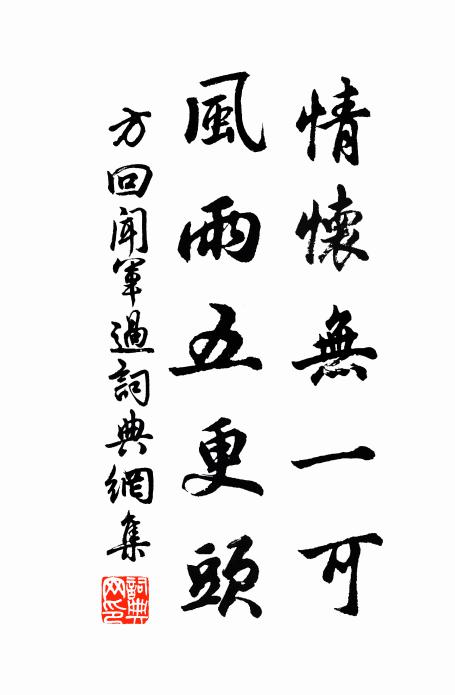 情懷無一可
風雨五更頭
方回聞軍過詞典網集
詞典網印